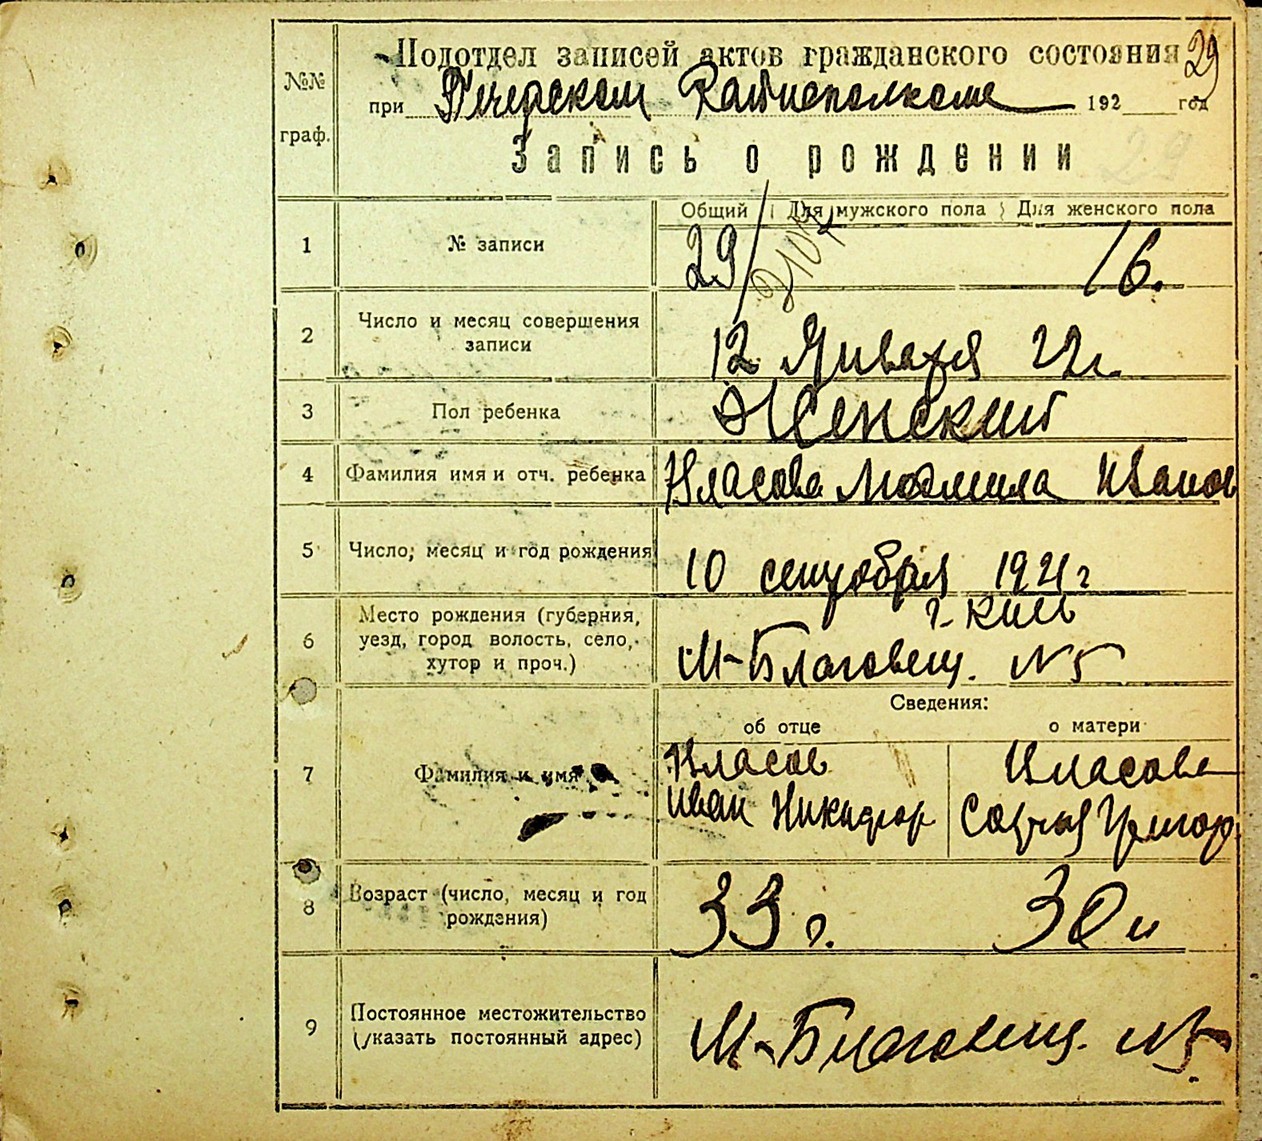 29
Подотдел записей актов гражданского состояния
№№
граф.
при Печерском Райисполкоме 192 год
Запись о рождении
29
Общий Для мужского пола Для женского пола
1 № записи 29 16.
2 Число и месяц совершения
записи
12 Января 22г.
3 Пол ребенка Женский
4 Фамилия имя и отч. ребенка Власова Людмила Иванов
5 Число, месяц и год рождения 10 сентября 1921 г
6 Место рождения (губерния,
уезд, город волость, село,
хутор и проч.)
г. Киев
М-Благовещ. №5
Сведения:
об отце о матери
7 Фамилия и имя
Власов
Иван Никифор
Власова
София Григор.
8 Возраст (число, месяц и год
рождения)
33 г. 30
9 Постоянное местожительство
(указать постоянный адрес)
М-Благовещ. №5.